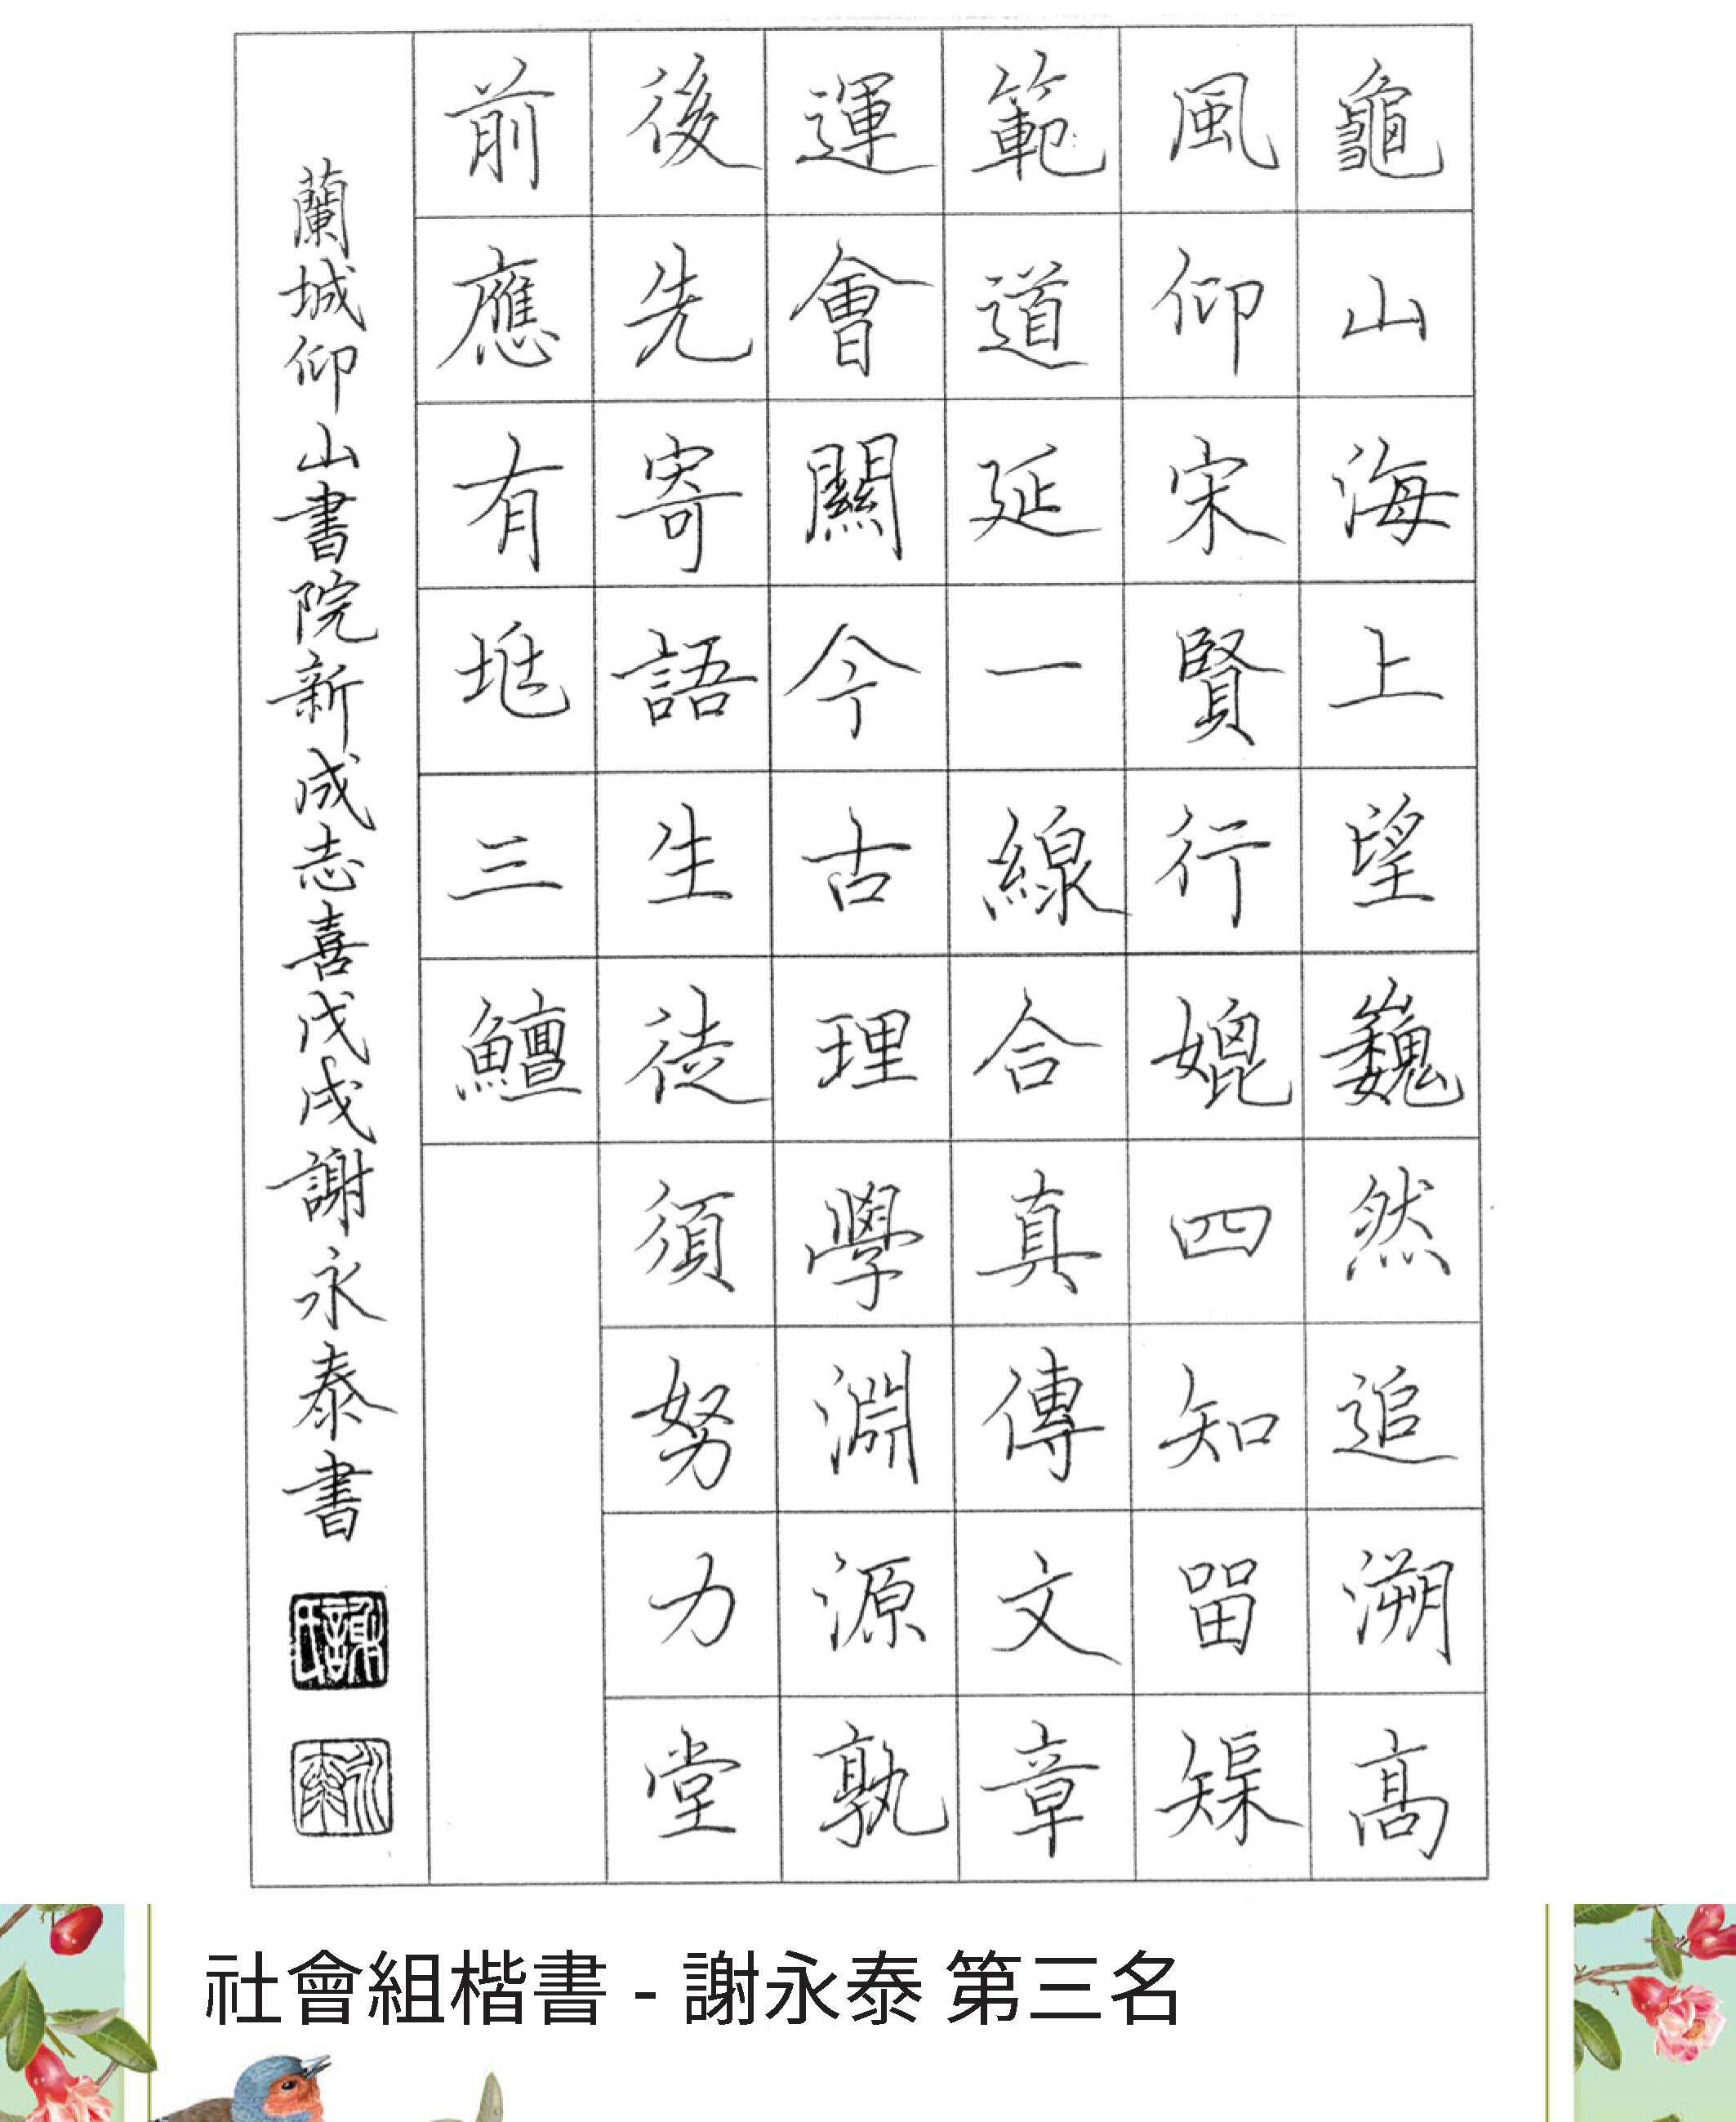 龜山海上望巍然追溯高
風仰宋賢行媲四知留榘
範道延一線合真傳文章
運會關今古理學淵源孰
後先寄語生徒須努力堂
前應有兆三鱣
蘭城仰山書院新成志喜戊戌謝永泰書
謝氏
永泰
社會組楷書 - 謝永泰 第三名